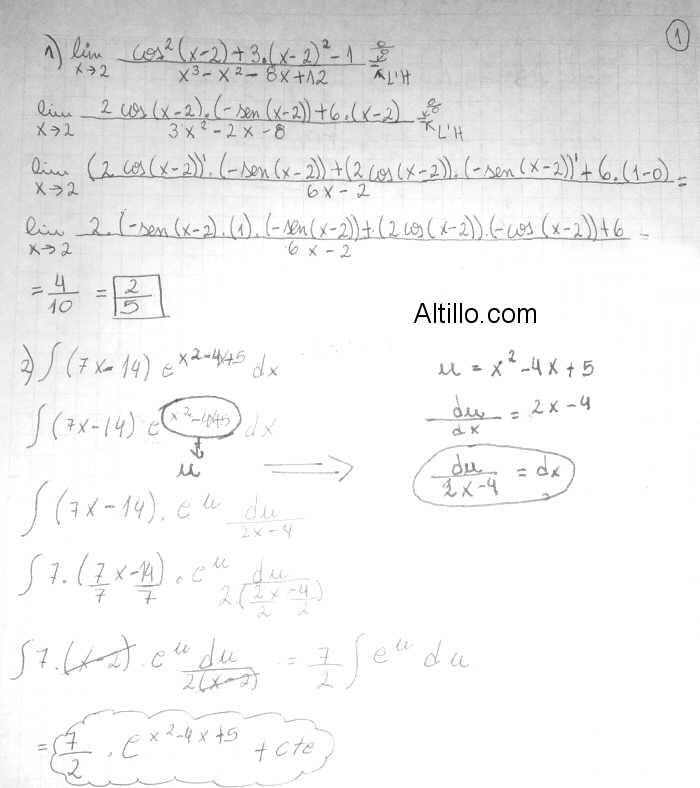 1
1) lim x→2 (cos²(x-2)+3.(x-2)²-1)/(x³-x²-8x+12) = 0/0 L'H
lim x→2 (2 cos(x-2).(-sen(x-2))+6.(x-2))/(3x²-2x-8) = 0/0 L'H
lim x→2 ((2 cos(x-2))'.(-sen(x-2))+(2 cos(x-2)).(-sen(x-2))'+6.(1-0))/(6x-2) =
lim x→2 (2.(-sen(x-2).(1).(-sen(x-2))+(2cos(x-2)).(-cos(x-2))+6)/(6x-2) =
= 4/10 = 2/5
Altillo.com
2) ∫(7x-14) e^(x²-4x+5) dx
u = x²-4x+5
∫(7x-14) e^(x²-4x+5) dx
du/dx = 2x-4
u ⟹
du/(2x-4) = dx
∫(7x-14). e^u du/(2x-4)
∫7.(7/7 x - 14/7) . e^u du/(2(2x/2 - 4/2))
∫7.(x-2) . e^u du/(2(x-2)) = 7/2 ∫e^u du
= 7/2 . e^(x²-4x+5) + cte